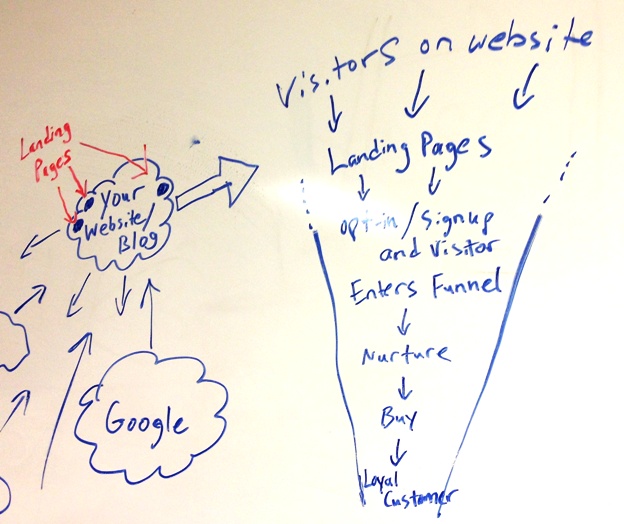 Landing
Pages
Your
Website/
Blog
Google
Visitors on website
Landing Pages
opt-in/Signup
and Visitor
Enters Funnel
Nurture
Buy
Loyal
Customer